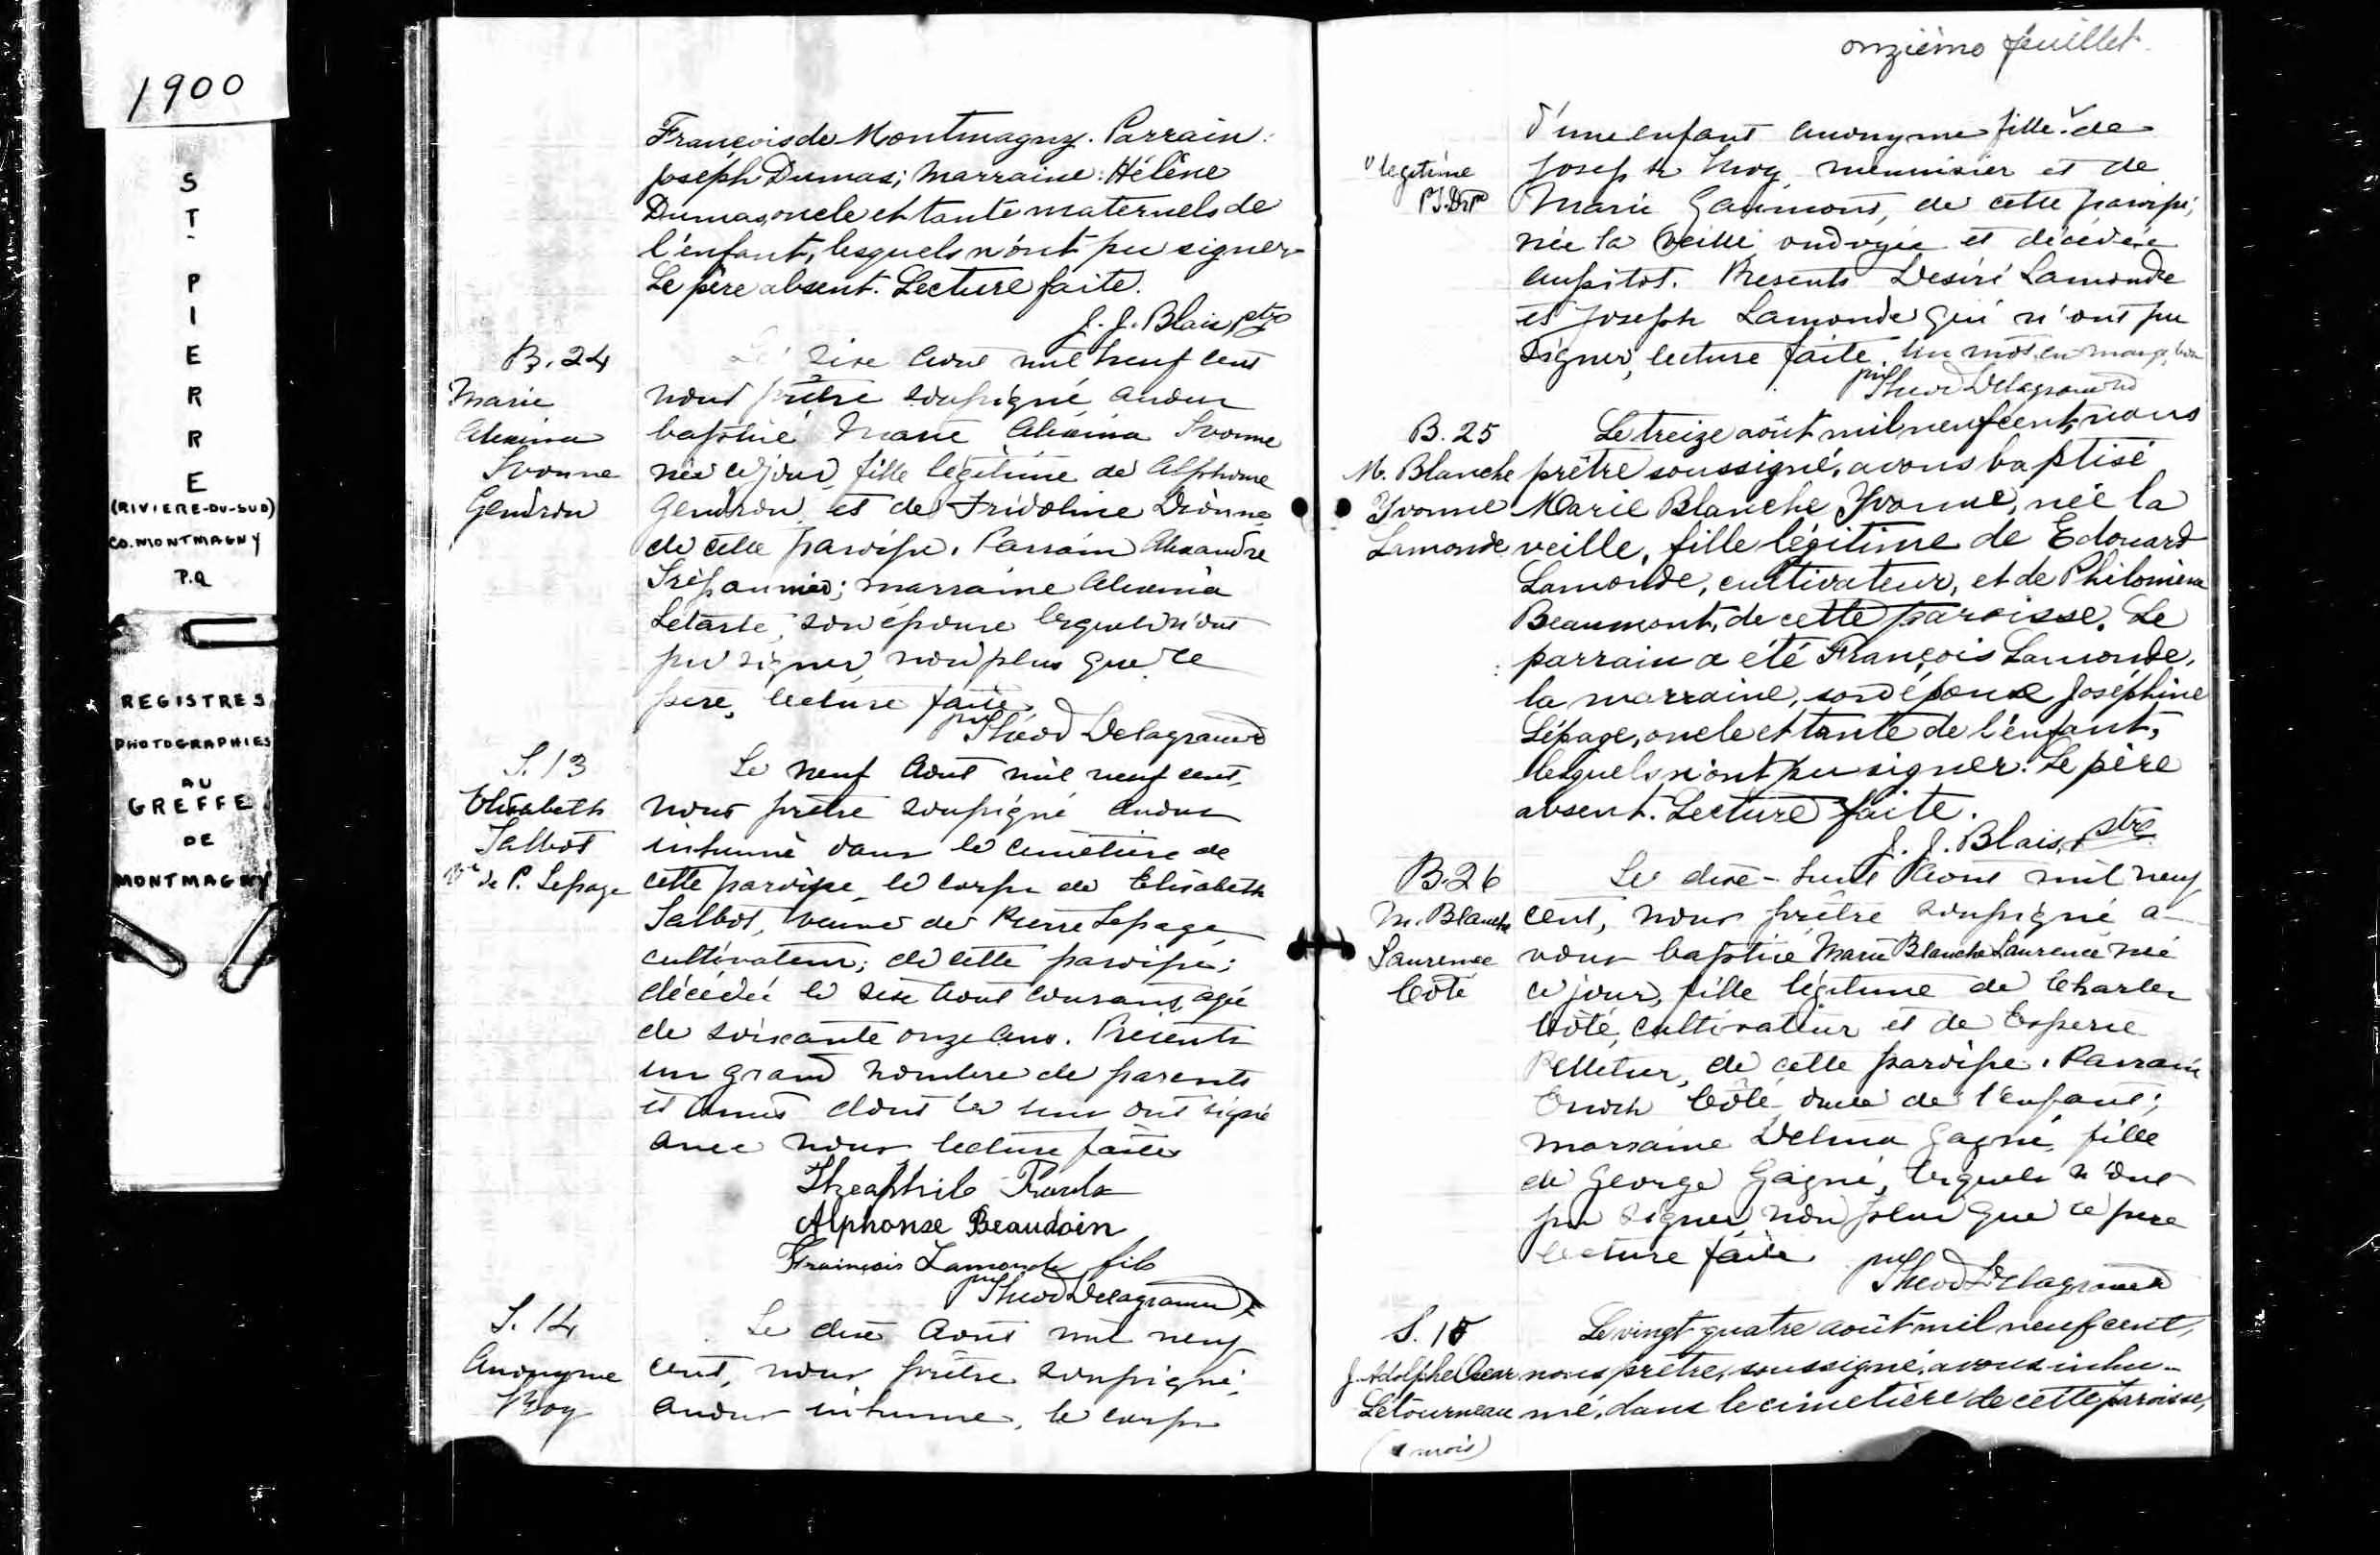 1900
ST-PIERRE
(RIVIERE-DU-SUD)
CO. MONTMAGNY
P.Q
REGISTRES
PHOTOGRAPHIES
AU
GREFFE
DE
MONTMAGNY
François de Montmagny. Parrain:
Joseph Dumas; Marraine: Hélène
Dumas, oncle et tante maternels de
l'enfant, lesquels n'ont pu signer
Le père absent. Lecture faite.
J. J. Blais ptre
B. 24
Marie
Alexina
Yvonne
Gendron
Le sixe Aout mil neuf cent
nous prêtre soussigné avons
baptisé Marie Alexina Yvonne
née ce jour, fille légitime de Alphonse
Gendron et de Fridoline Dionne
de cette paroisse. Parrain Alexandre
Trépannier; marraine Alexina
Letarte, son épouse lesquels n'ont
pu signer, non plus que le
père, lecture faite.
Théod Delagrave
S. 13
Elisabeth
Talbot
Vve de P. Lepage
Le neuf Aout mil neuf cent,
nous prêtre soussigné avons
inhumé dans le cimetière de
cette paroisse le corps de Elisabeth
Talbot, veuve de Pierre Lepage,
cultivateur; de cette paroisse;
décédée le sixe Aout courant, agée
de soixante onze ans. Présents
un grand nombre de parents
et amis dont les uns ont signé
avec nous lecture faite
Theophile
Alphonse Beaudoin
François Lamonde fils
Théod Delagrave
S. 14
Anonyme
Le dixe Aout mil neuf
cent, nous prêtre soussigné,
avons inhumé, le corps
onzième feuillet
d'une enfant anonyme fille de
légitime
Joseph menuisier et de
Marie Gaumond, de cette paroisse,
née la veille, ondoyée et décédée
aussitot. Présents Desiré Lamonde
et Joseph Lamonde qui n'ont pu
signer, lecture faite. Un mot en marge, bon
Théod Delagrave
B. 25
M. Blanche
Yvonne
Lamonde
Le treize août mil neuf cent, nous
prêtre soussigné, avons baptisé
Marie Blanche Yvonne, née la
veille, fille légitime de Edouard
Lamonde, cultivateur, et de Philomène
Beaumont, de cette paroisse. Le
parrain a été François Lamonde,
la marraine, son épouse Joséphine
Lépage, oncle et tante de l'enfant,
lesquels n'ont pu signer. Le père
absent. Lecture faite.
J. J. Blais, ptre
B. 26
M. Blanche
Laurence
Côté
Le dixe-huit Aout mil neuf
cent, nous prêtre soussigné a-
vons baptisé Marie Blanche Laurence née
ce jour, fille légitime de Charles
Côté, cultivateur et de
Pelletier, de cette paroisse. Parrain
Enoch Côté oncle de l'enfant;
marraine Delima Gagné, fille
de George Gagné, lesquels n'ont
pu signer, non plus que le père
lecture faite
Théod Delagrave
S. 15
J. Adolphe Oscar
Letourneau
( mois)
Le vingt-quatre août mil neuf cent,
nous prêtre, soussigné, avons inhu-
mé, dans le cimetière de cette paroisse,